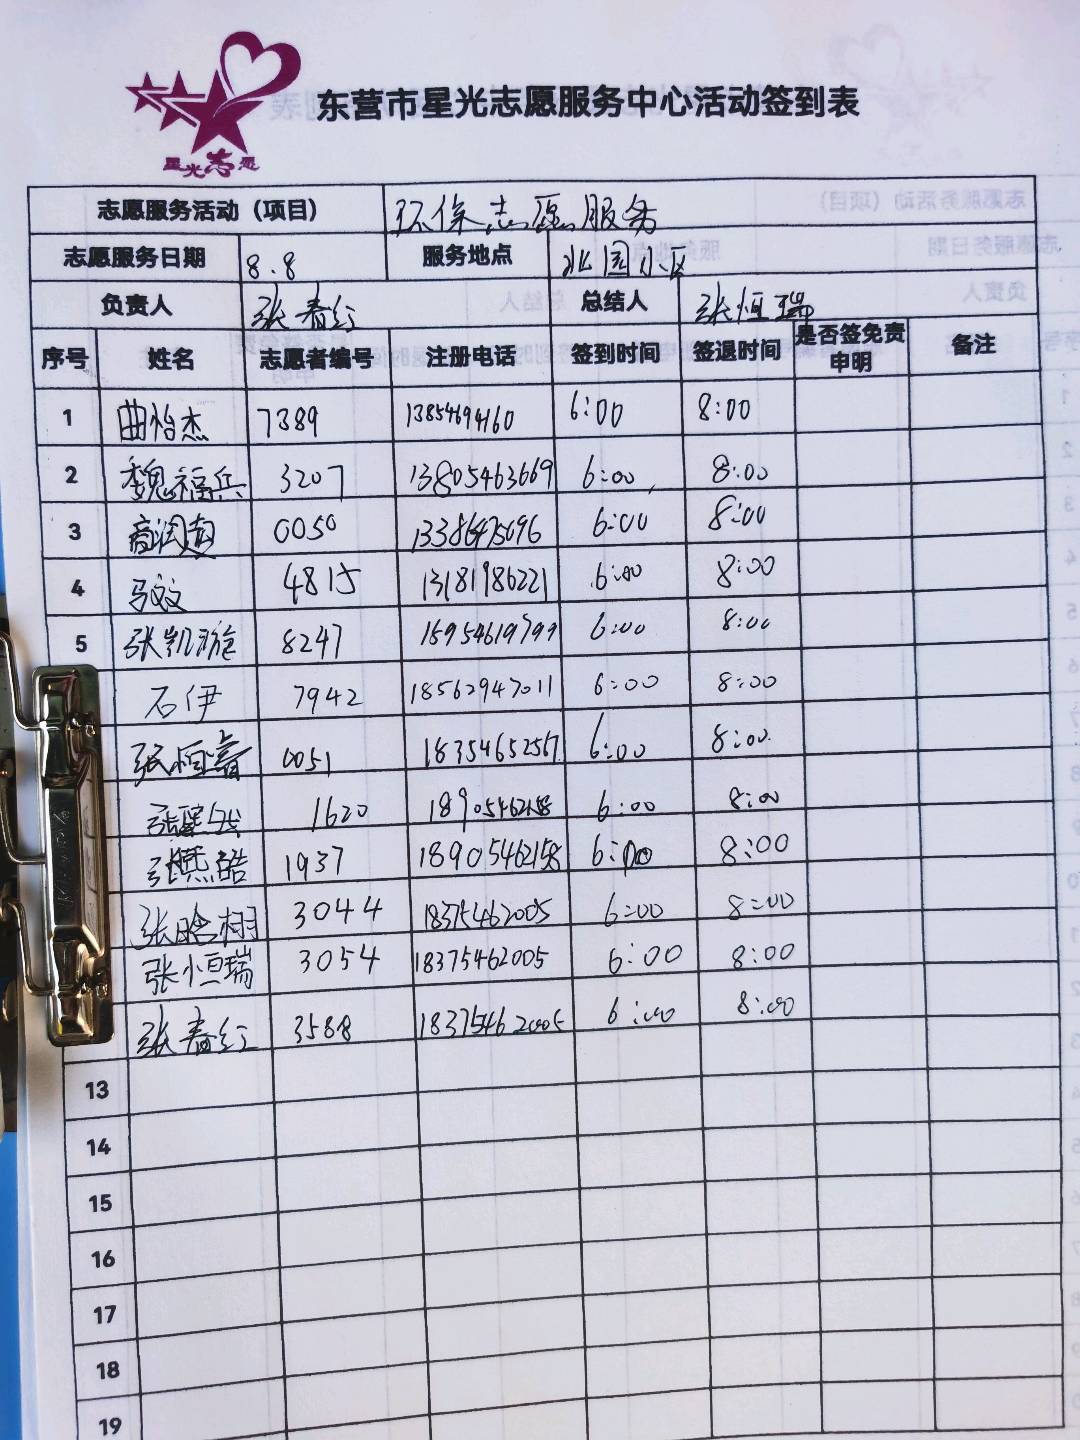 星光志愿
东营市星光志愿服务中心活动签到表
志愿服务活动（项目） 环保志愿服务
志愿服务日期 8.8 服务地点 北园小区
负责人 张春红 总结人 张恒瑞
序号 姓名 志愿者编号 注册电话 签到时间 签退时间 是否签免责申明 备注
1 曲怡杰 7389 13854694160 6:00 8:00
2 魏福兵 3207 13805463669 6:00 8:00
3 商润 0050 13386475696 6:00 8:00
4 马文 4815 13181986221 6:00 8:00
5 张凯璇 8247 15954619799 6:00 8:00
石伊 7942 18562947011 6:00 8:00
张恒嘉 0051 18354652567 6:00 8:00
张 1620 18905462158 6:00 8:00
张熙皓 1937 18905462158 6:00 8:00
张晗栩 3044 18375462005 6:00 8:00
张恒瑞 3054 18375462005 6:00 8:00
张春红 3588 18375462005 6:00 8:00
13
14
15
16
17
18
19